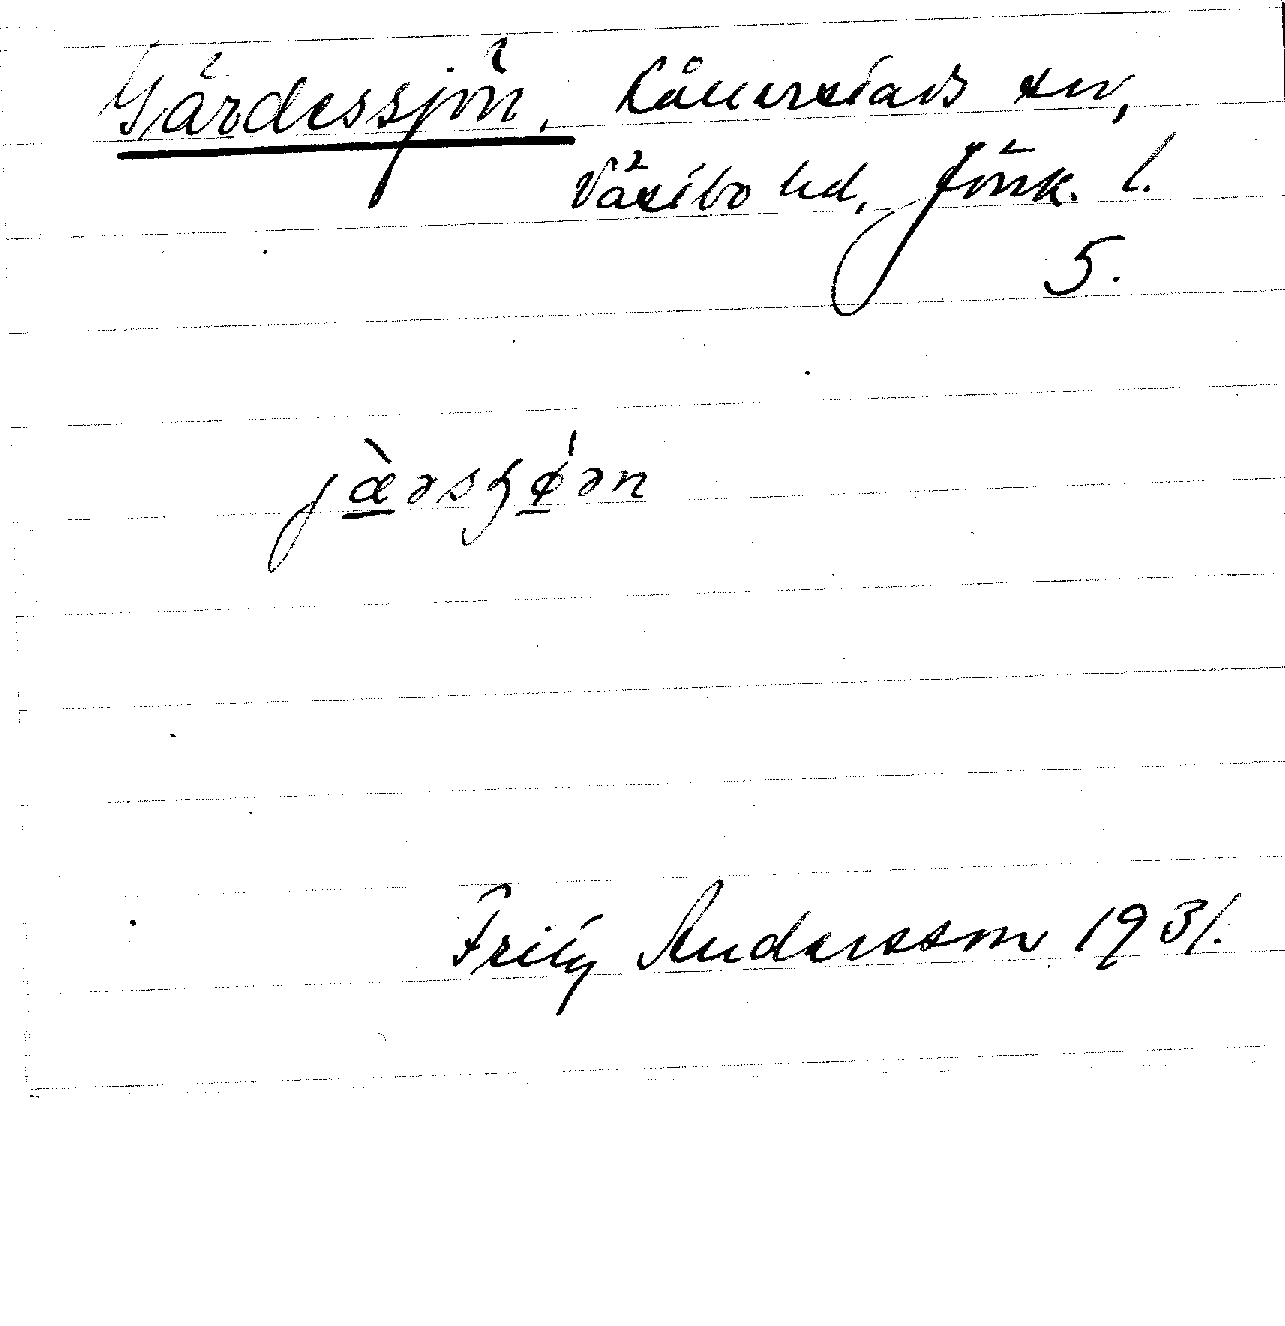 Gärdessjön. Kållerstads sn,
Västbo hd, Jönk. l.
5.
jæ̀əsɧǿən
Fritz Andersson 1931.